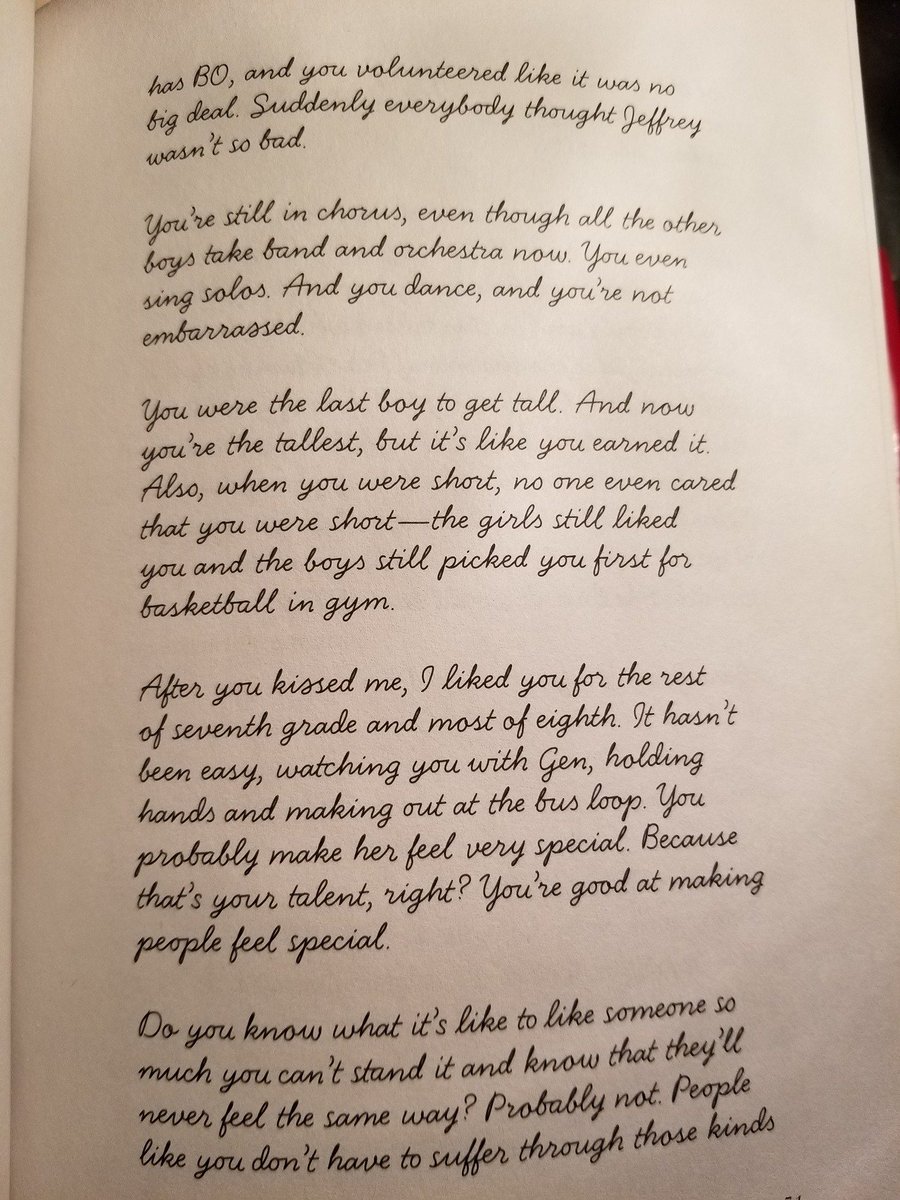 has BO, and you volunteered like it was no
big deal. Suddenly everybody thought Jeffrey
wasn't so bad.
You're still in chorus, even though all the other
boys take band and orchestra now. You even
sing solos. And you dance, and you're not
embarrassed.
You were the last boy to get tall. And now
you're the tallest, but it's like you earned it.
Also, when you were short, no one even cared
that you were short—the girls still liked
you and the boys still picked you first for
basketball in gym.
After you kissed me, I liked you for the rest
of seventh grade and most of eighth. It hasn't
been easy, watching you with Gen, holding
hands and making out at the bus loop. You
probably make her feel very special. Because
that's your talent, right? You're good at making
people feel special.
Do you know what it's like to like someone so
much you can't stand it and know that they'll
never feel the same way? Probably not. People
like you don't have to suffer through those kinds